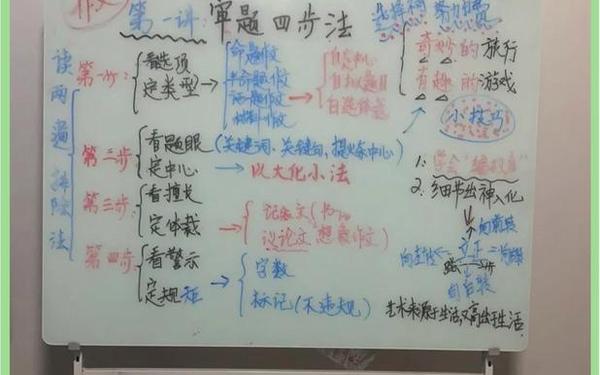 作文
第一讲：审题四步法
读两遍 排除法
第一步：
看选项
定类型
命题作文
半命题作文
话题作文
材料作文
自定中心
自拟题目
自选体裁
奇妙的旅行
有趣的游戏
第二步：
看题眼 (关键词、关键句，提炼中心)
定中心 → 以大化小法
第三步：
看擅长
定体裁
记叙文
议论文 想象作文)
第四步：
看警示
定规矩
字数
标记 (不违规)
小技巧
1. 学会"编故事"
2. 细节出神入化
向前
艺术来源于生活，又高出于生活